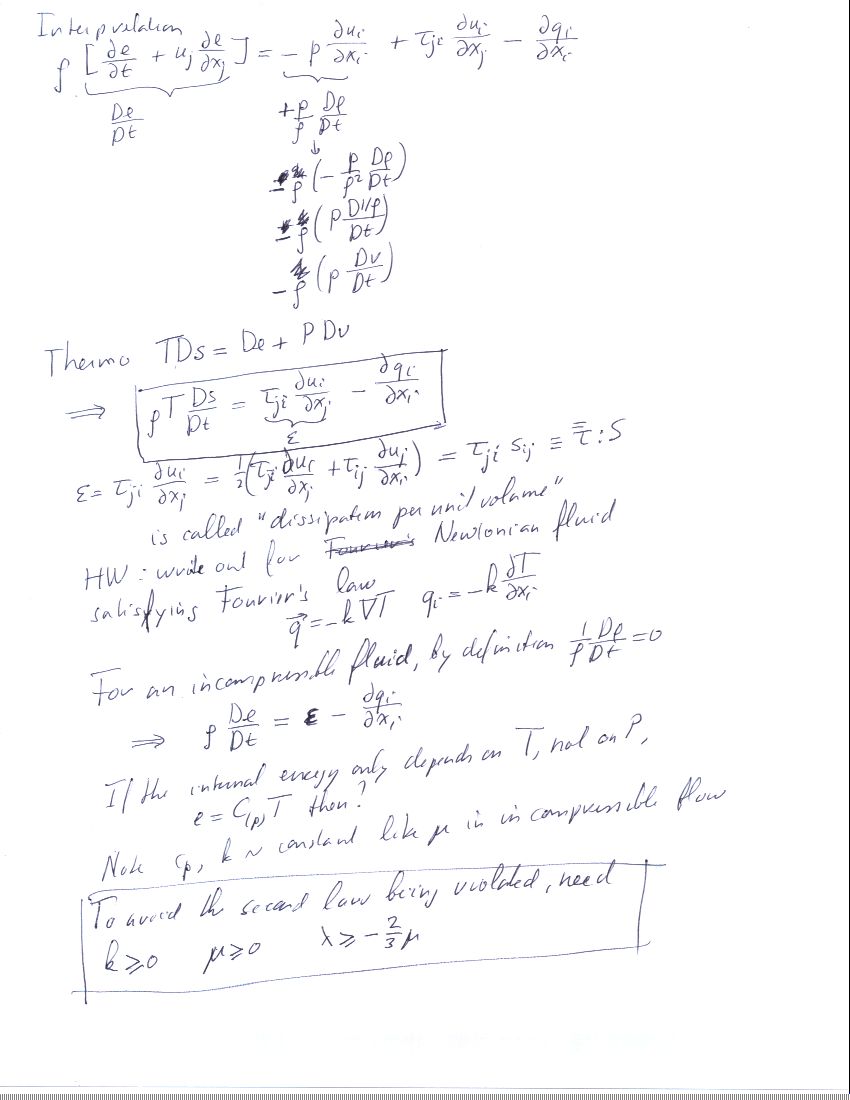 Interpretation
ρ [∂e/∂t + u_j ∂e/∂x_j] = − p ∂u_i/∂x_i + τ_ji ∂u_i/∂x_j − ∂q_i/∂x_i
De/Dt + p/ρ Dρ/Dt
↓
− ρ (− p/ρ² Dρ/Dt)
− ρ (p D1/ρ/Dt)
− ρ (p Dv/Dt)
Thermo TDs = De + P Dv
⟹ ρT Ds/Dt = τ_ji ∂u_i/∂x_j − ∂q_i/∂x_i
ε
ε = τ_ji ∂u_i/∂x_j = ½(τ_ji ∂u_i/∂x_j + τ_ij ∂u_j/∂x_i) = τ_ji s_ij ≡ τ̿ : S
is called "dissipation per unit volume"
HW: write out for Fourier's Newtonian fluid
satisfying Fourier's law
q⃗ = −k∇T q_i = −k ∂T/∂x_i
For an incompressible fluid, by definition 1/ρ Dρ/Dt = 0
⟹ ρ De/Dt = ε − ∂q_i/∂x_i
If the internal energy only depends on T, not on P,
e = C_(p) T then?
Note c_p, k ~ constant like μ in incompressible flow
To avoid the second law being violated, need
k ≥ 0 μ ≥ 0 λ ≥ −2/3 μ